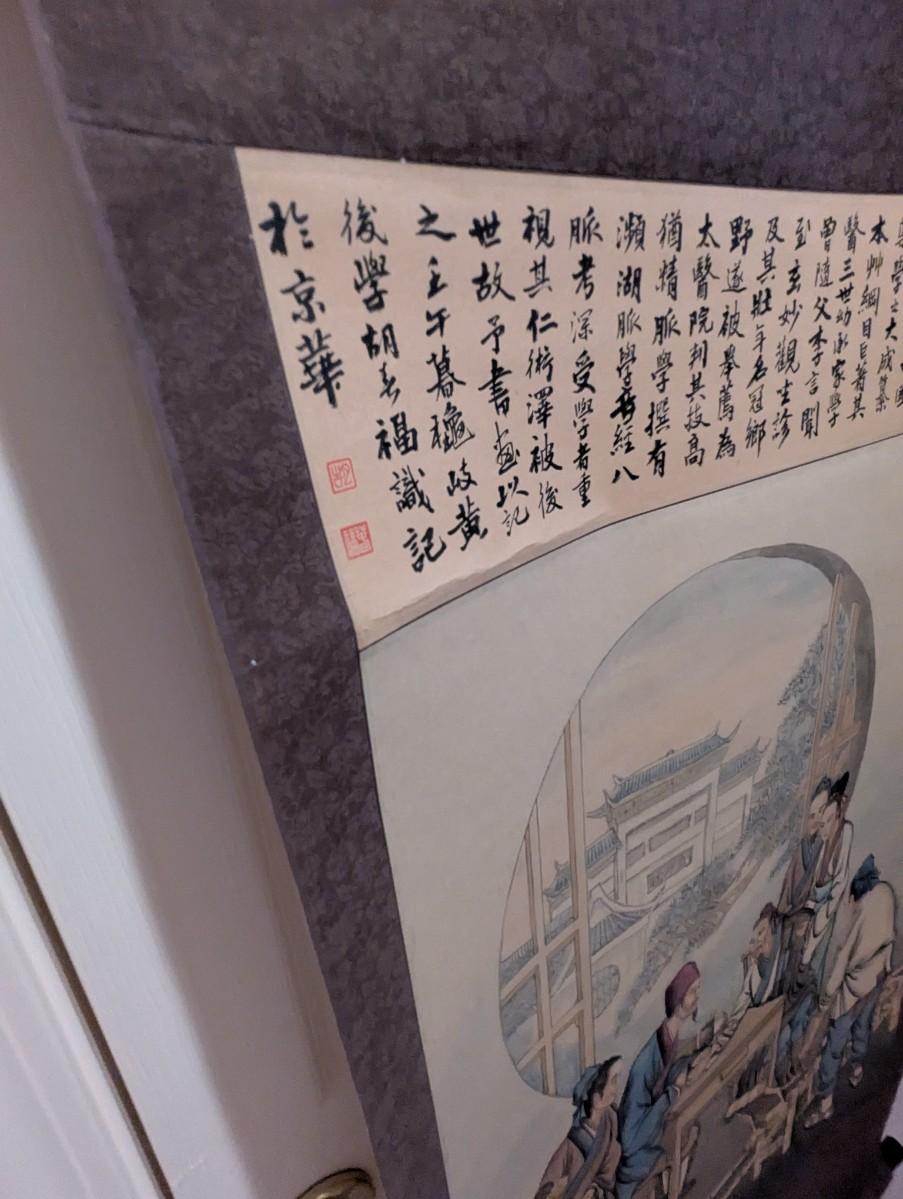 本艸綱目巨著其
醫三世幼承家學
曾隨父李言聞
至玄妙觀坐診
及其壯年名冠鄉
野遂被舉薦為
太醫院判其技高
猶精脈學撰有
瀕湖脈學奇經八
脈考深受學者重
視其仁術澤被後
世故予書畫以記
之壬午暮龝岐黃
後學胡春福識記
於京華